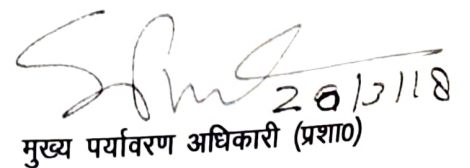 26/3/18
मुख्य पर्यावरण अधिकारी (प्रशा0)